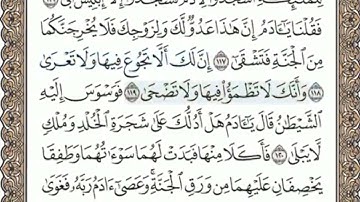 فَقُلْنَا يَٰٓـَٔادَمُ إِنَّ هَٰذَا عَدُوٌّ لَّكَ وَلِزَوْجِكَ فَلَا يُخْرِجَنَّكُمَا
مِنَ ٱلْجَنَّةِ فَتَشْقَىٰٓ ١١٧ إِنَّ لَكَ أَلَّا تَجُوعَ فِيهَا وَلَا تَعْرَىٰ
١١٨ وَأَنَّكَ لَا تَظْمَؤُا۟ فِيهَا وَلَا تَضْحَىٰ ١١٩ فَوَسْوَسَ إِلَيْهِ
ٱلشَّيْطَٰنُ قَالَ يَٰٓـَٔادَمُ هَلْ أَدُلُّكَ عَلَىٰ شَجَرَةِ ٱلْخُلْدِ وَمُلْكٍ
لَّا يَبْلَىٰ ١٢٠ فَأَكَلَا مِنْهَا فَبَدَتْ لَهُمَا سَوْءَٰتُهُمَا وَطَفِقَا
يَخْصِفَانِ عَلَيْهِمَا مِن وَرَقِ ٱلْجَنَّةِ ۚ وَعَصَىٰٓ ءَادَمُ رَبَّهُۥ فَغَوَىٰ